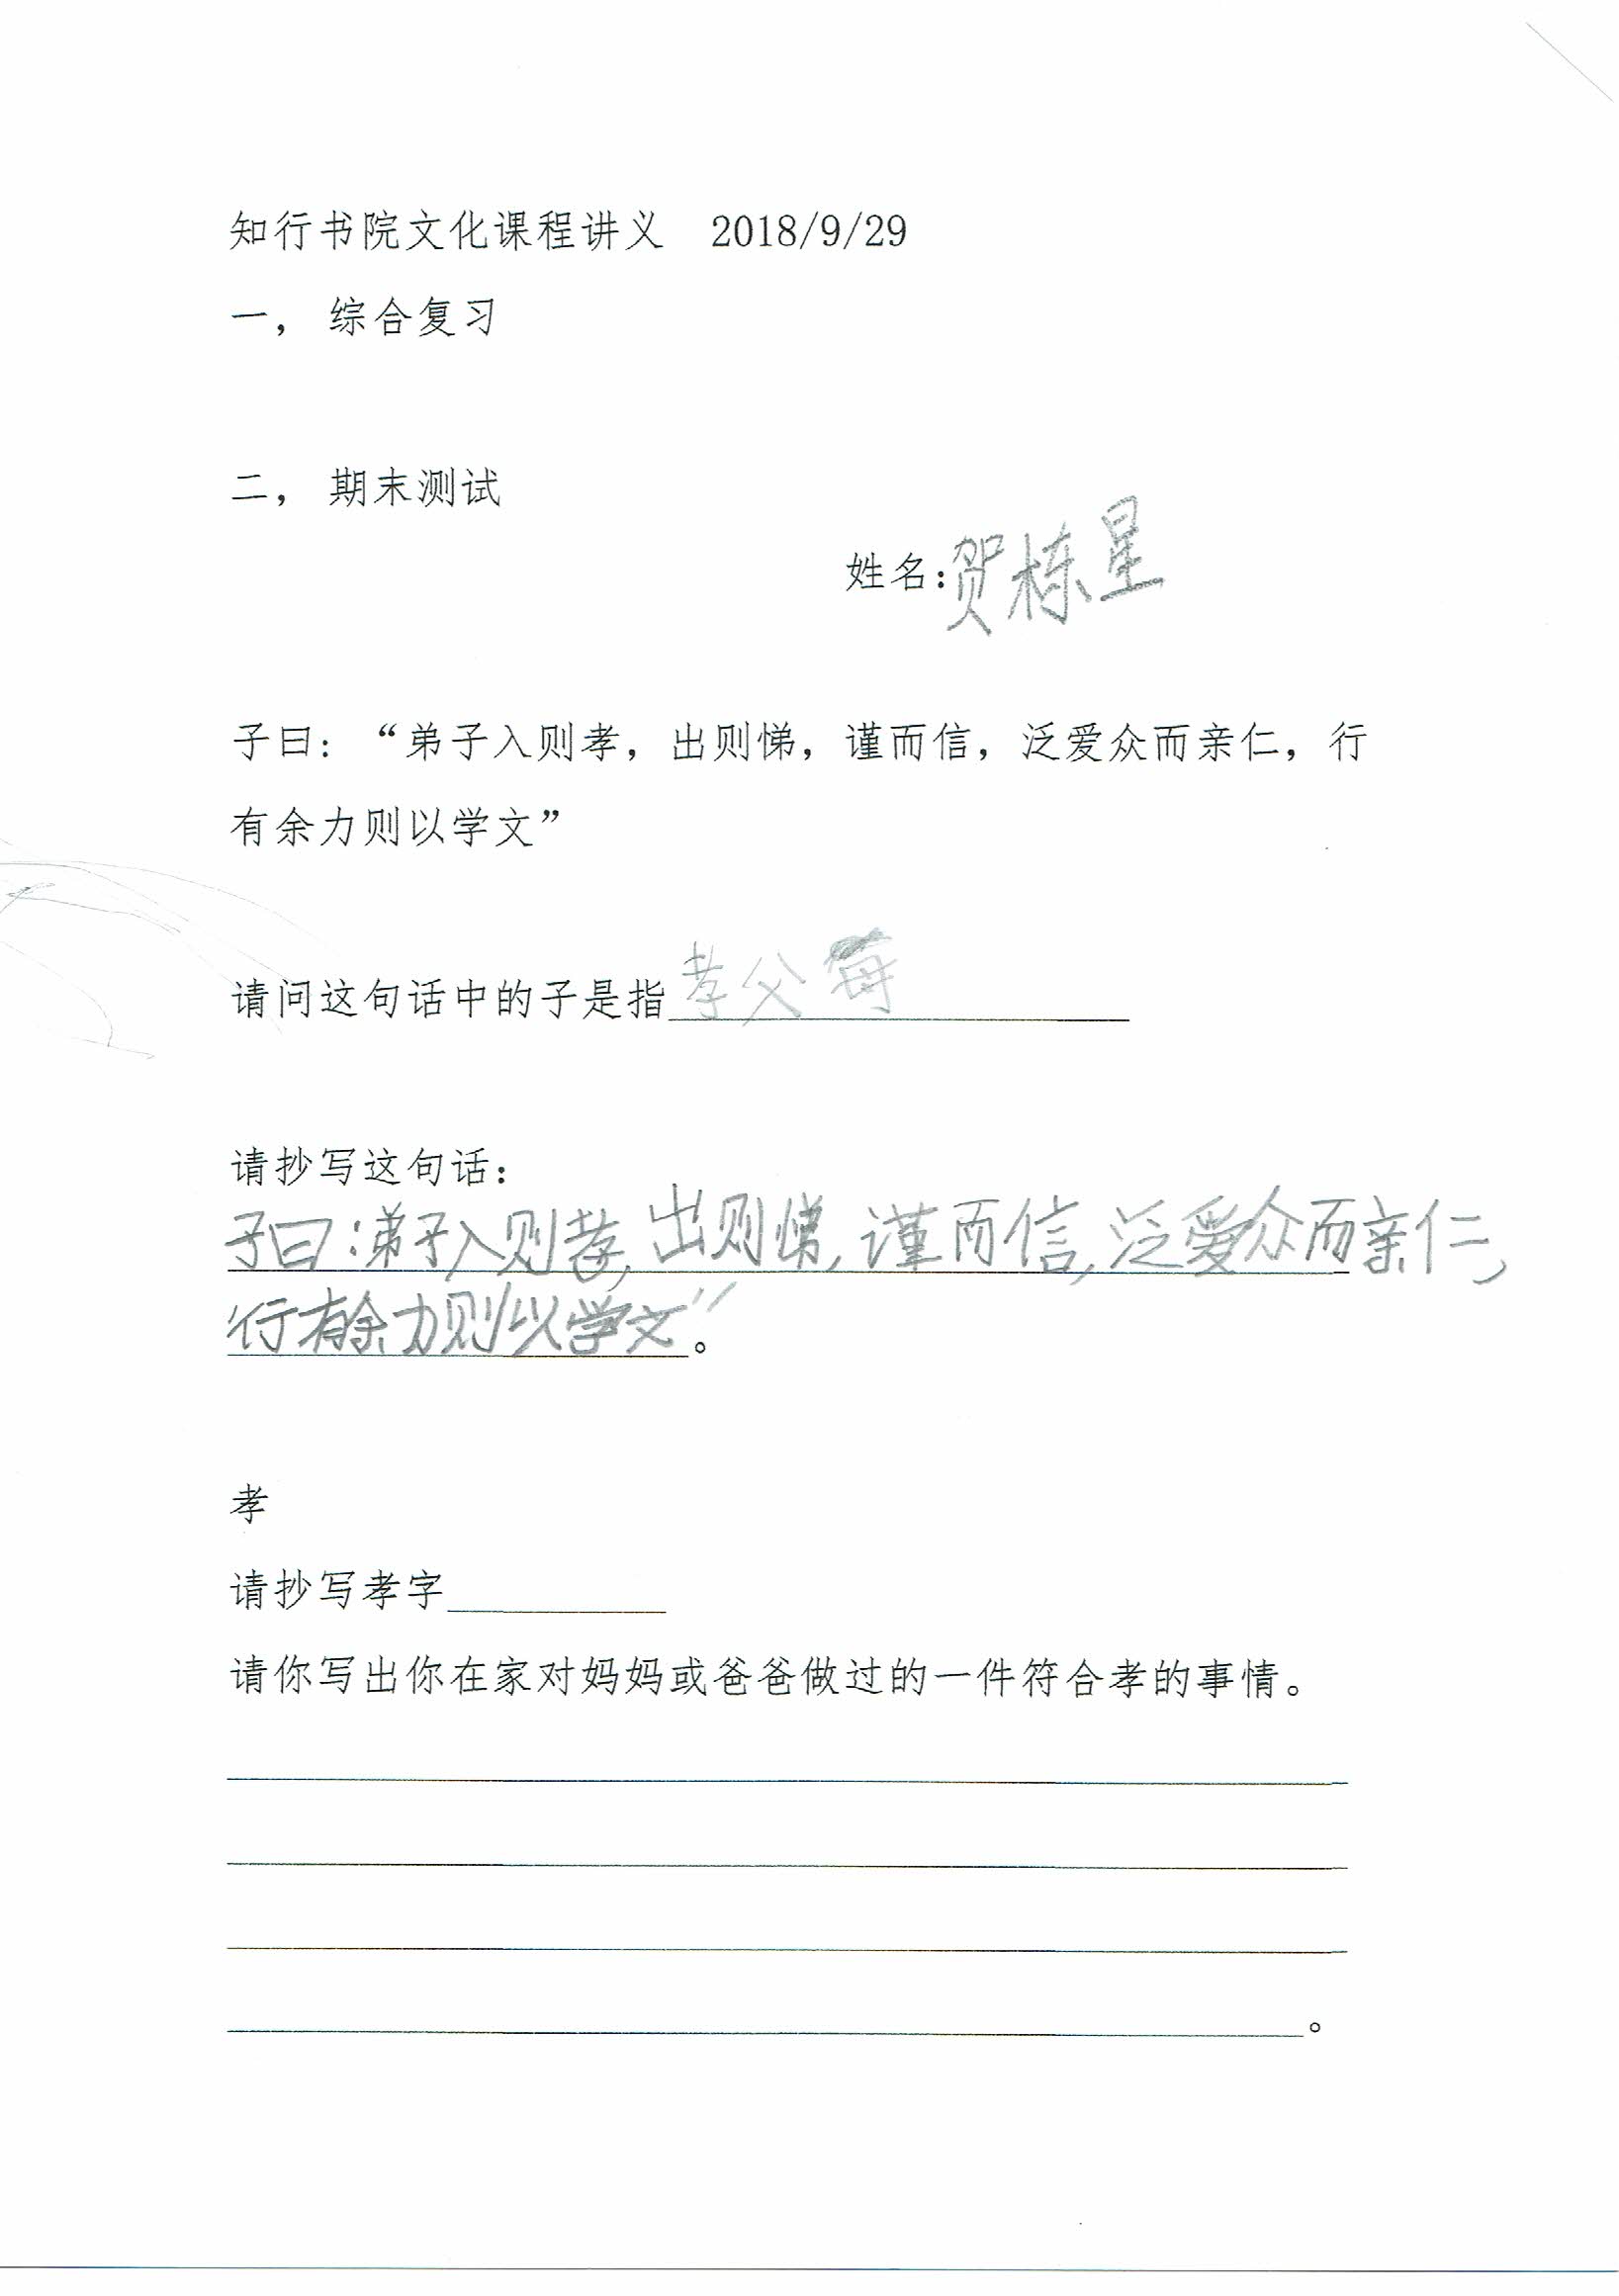 知行书院文化课程讲义 2018/9/29
一， 综合复习
二， 期末测试
姓名：贺栋星
子曰：“弟子入则孝，出则悌，谨而信，泛爱众而亲仁，行
有余力则以学文”
请问这句话中的子是指孝父母
请抄写这句话：
子曰：弟子入则孝，出则悌，谨而信，泛爱众而亲仁，
行有余力则以学文”。
孝
请抄写孝字
请你写出你在家对妈妈或爸爸做过的一件符合孝的事情。
。